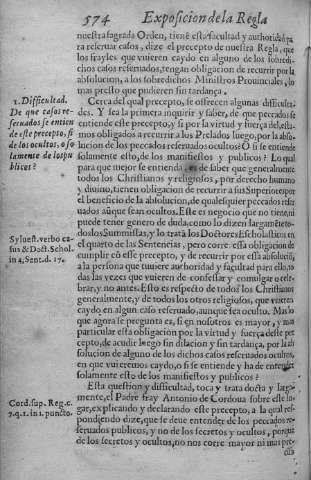 574 Exposicion de la Regla
nuestra sagrada Orden, tiene esta facultad y authoridad pa
ra reservar casos, dize el precepto de nuestra Regla, que
los frayles que vuieren caydo en alguno de los sobredi-
chos casos reseruados, tengan obligacion de recurrir por la
absolucion, a los sobredichos Ministros Prouinciales, lo
mas presto que pudieren sin tardança.
1. Difficultad.
De que casos re-
seruados se entien
de este precepto, si
de los ocultos, o so
lamente de los pu
blicos?
Cerca del qual precepto, se offrecen algunas difficulta-
des. Y sea la primera inquirir y saber, de que peccados se
entiende este precepto, y si por la virtud y fuerça del, esta-
mos obligados a recurrir a los Prelados luego, por la abso
lucion de los peccados reseruados ocultos? O si se entiende
solamente esto, de los manifiestos y publicos? Lo qual
para que mejor se entienda, es de saber que generalmente
todos los Christianos y religiosos, por derecho humano
y diuino, tienen obligacion de recurrir a sus Superiores por
el beneficio de la absolucion, de qualesquier peccados reser
uados aunque sean ocultos. Este es negocio que no tiene, ni
puede tener genero de duda, como lo dizen largamente to-
dos los Summistas, y lo trata los Doctores Escholasticos en
Syluest. verbo ca-
sus & Doct. Schol.
in 4. Sent. d. 17.
el quarto de las Sentencias, pero corre essa obligacion de
cumplir con esse precepto, y de recurrir por essa absoluciõ,
a la persona que tuuiere authoridad y facultad para ello,
todas las vezes que vuieren de confessar y comulgar o cele-
brar, y no antes. Esto es respecto de todos los Christianos
generalmente, y de todos los otros religiosos, que vuieren
caydo en algun caso reseruado, aunque sea oculto. Mas lo
que agora se pregunta es, si en nosotros es mayor, y mas
particular esta obligacion por la virtud y fuerça deste pre
cepto, de acudir luego sin dilacion y sin tardança, por la ab
solucion de alguno de los dichos casos reseruados ocultos,
en que vuieremos caydo, o si se entiende y ha de entender
solamente esto de los manifiestos y publicos?
Esta question y difficultad, toca y trata docta y larga-
mente, el Padre fray Antonio de Cordoua sobre este lu-
Cord. sup. Reg. c.
7. q. 1. in 1. puncto.
gar, explicando y declarando este precepto, a la qual res-
pondiendo dize, que se deue entender de los peccados re
seruados publicos, y no de los secretos y ocultos, porque
de los secretos y ocultos, no nos corre mayor ni mas pre-